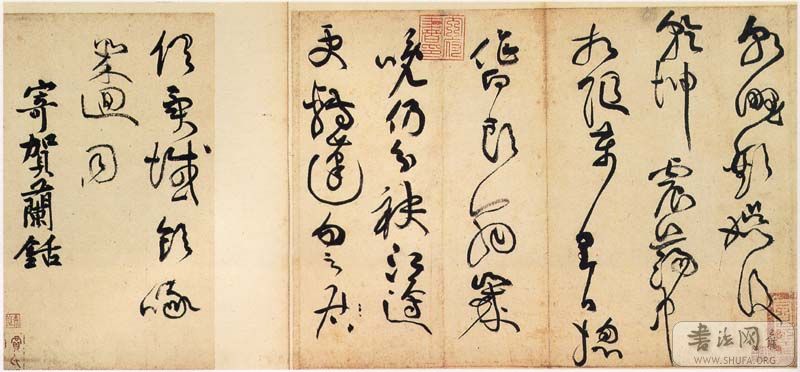 朝野歡娛後
乾坤震蕩中
相隨萬里日總
作白頭翁歲
晚仍分袂江邊
更轉蓬勿云
俱異域飲啄
幾迴同
寄賀蘭銛
书法网
WWW.SHUFA.ORG